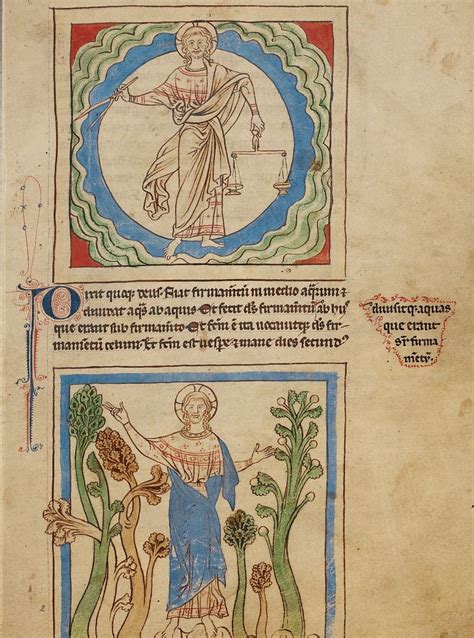 2
Dixit quoq; deus. Fiat firmamētū in medio aq̄rum ⁊
diuidat aq̄s ab aquis. Et fecit d̄s firmamētū ab his
que erant sub firmam̄to. Et fc̄m ē ita. uocauitq; d̄s fir
mamentū celum. Et fc̄m est uesp̄e ⁊ mane dies secundꝰ
diuisitq; aquas
que erant
sr̄ firma
mētū.
2